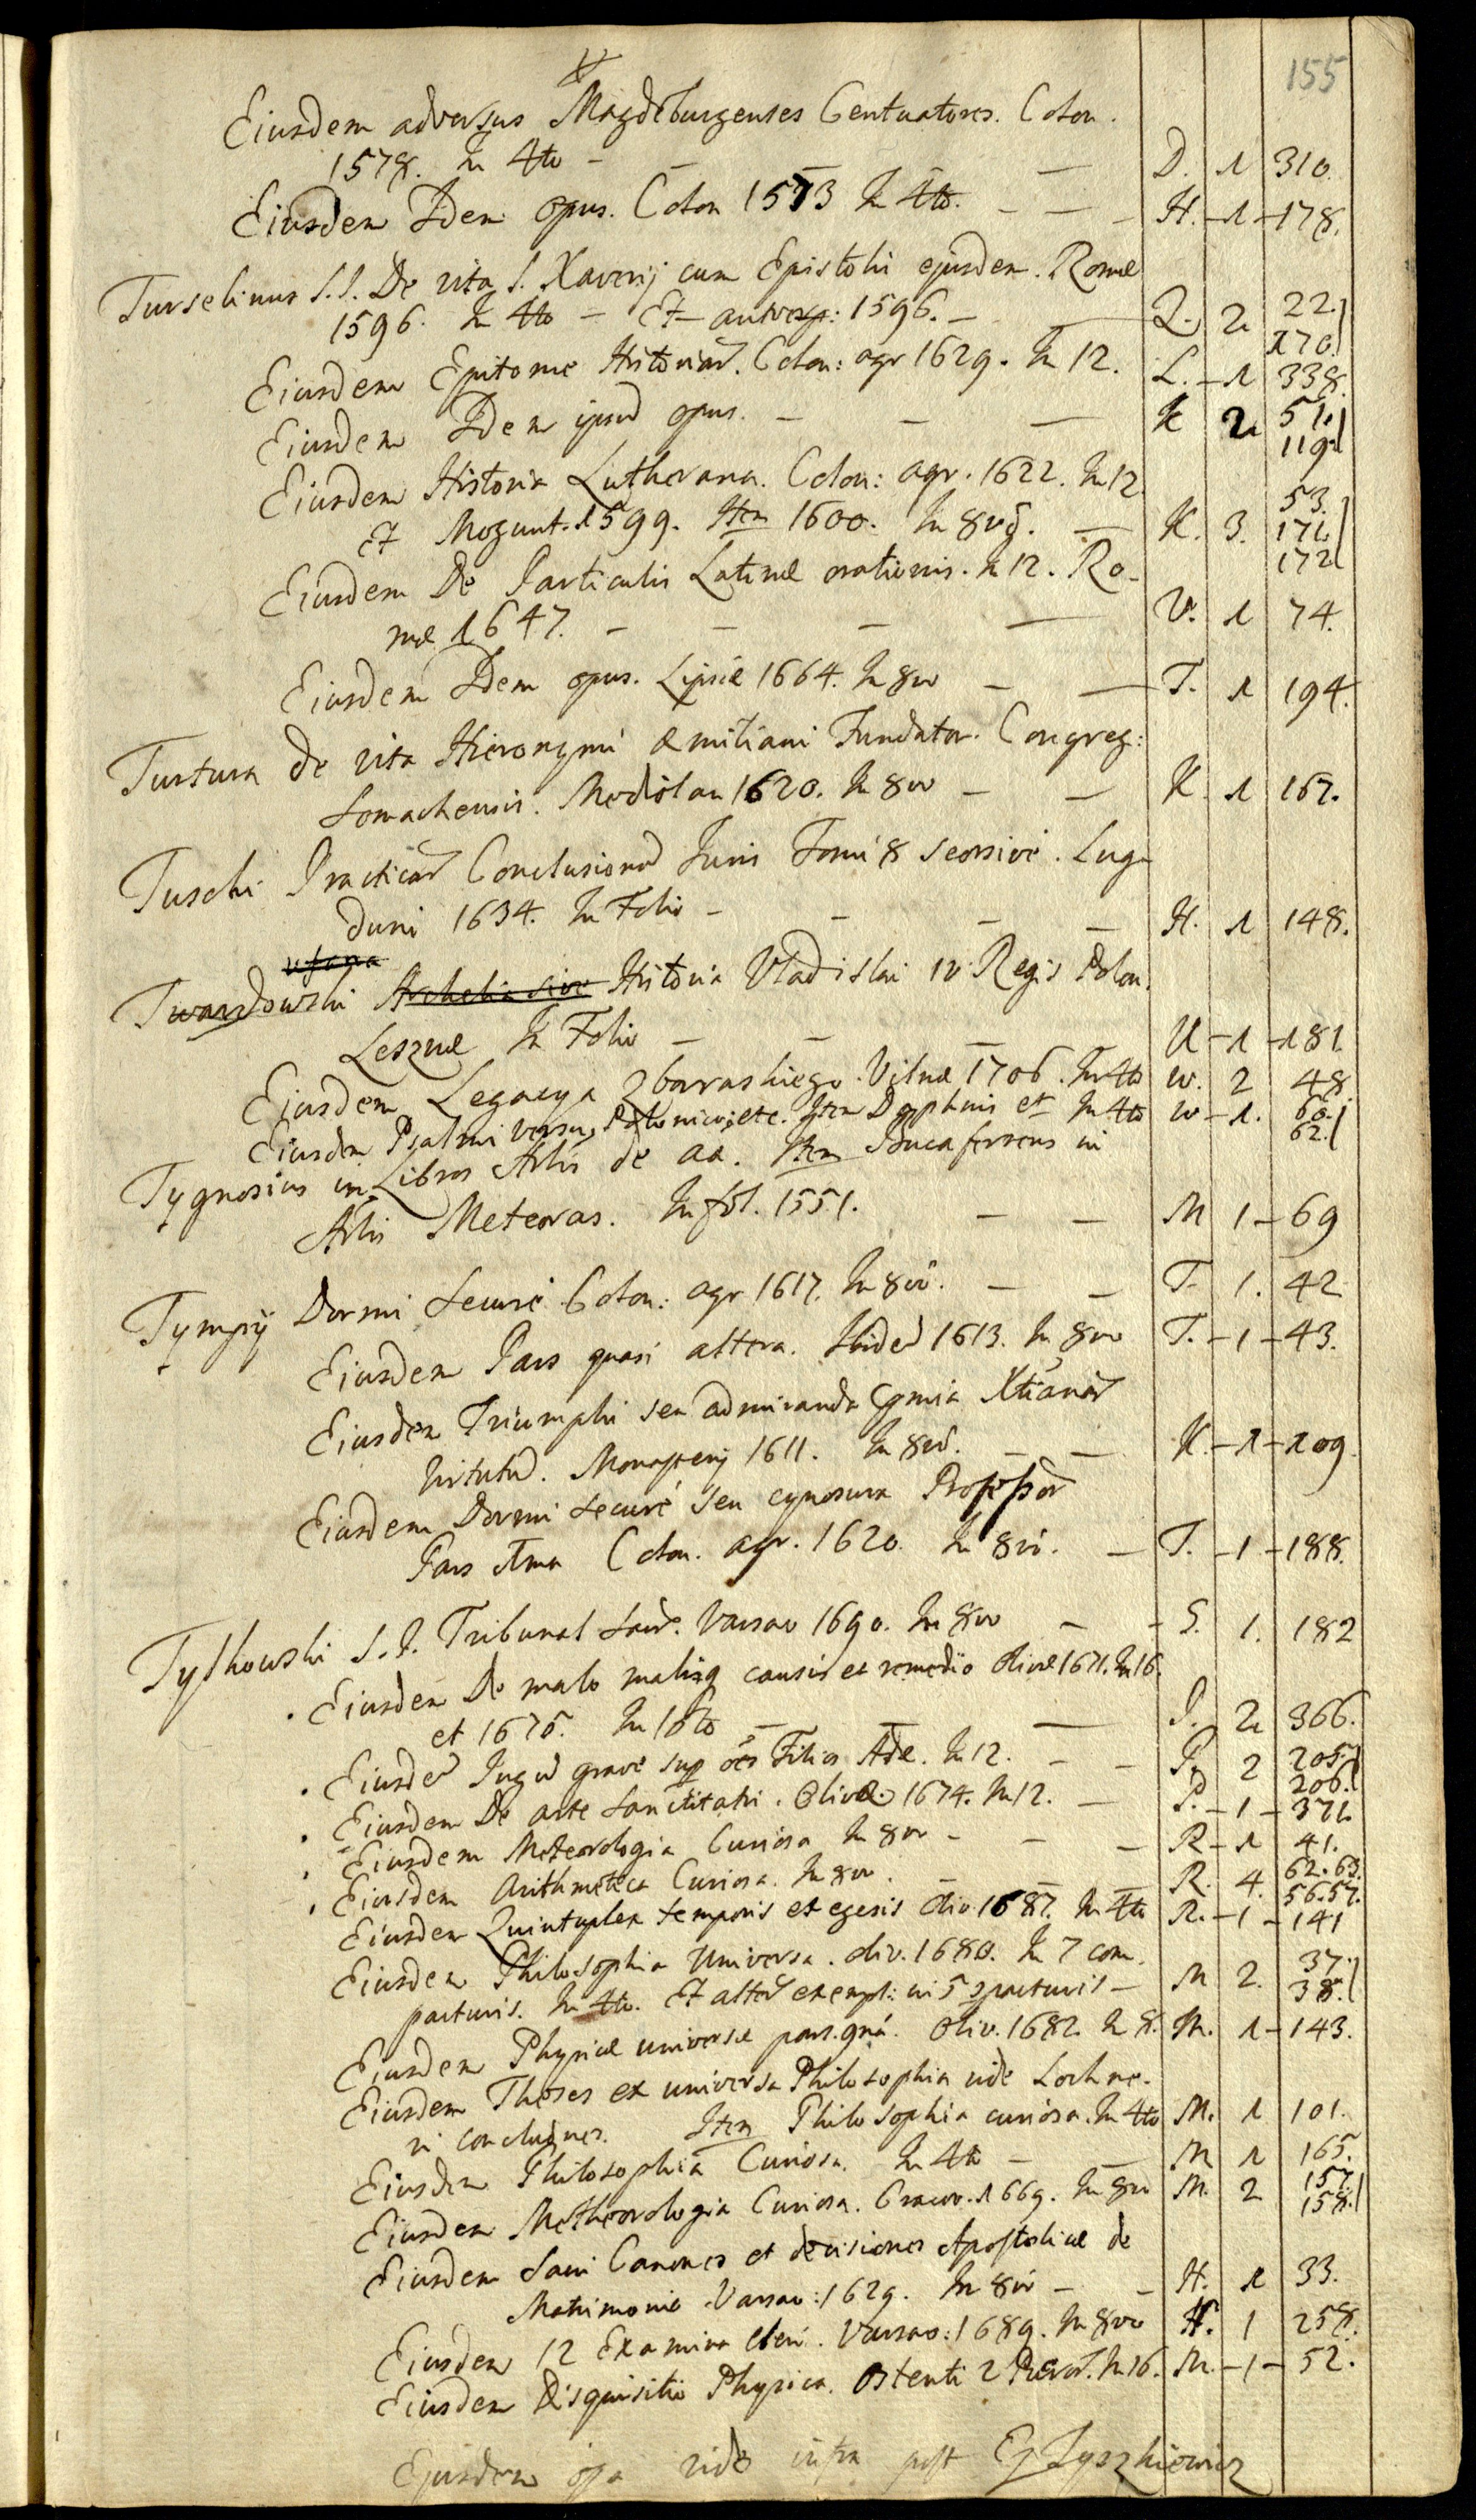 155
Eiusdem adversus Magdeburgenses Centuatores. Colon.
1578. In 4to - - - D. 1 310.
Eiusdem Idem opus. Colon 1573 In 4to. - - - H. - 1 - 178.
Turselinus S.J. De vita S. Xaverij cum Epistolis ejusdem. Romæ
1596. In 4to - Et antverp: 1596. - - Q. 2 22. 170.
Eiusdem Epitome Historiar. Colon: agr 1629. In 12. L. - 1 338
Eiusdem Idem ipsud opus. - - - K 2 51. 119
Eiusdem Historia Lutherana. Colon: agr. 1622. In 12
et Mogunt. 1599. Item 1600. In 8vo. - K. 3. 53. 171. 172
Eiusdem De Particulis Latinæ orationis. In 12. Ro-
mæ 1647. - - - - V. 1 74.
Eiusdem Idem opus. Lipsiæ 1664. In 8vo - - T. 1 194.
Turtura de vita Hieronymi Æmiliani Fundator. Congreg:
Somachensis. Mediolan 1620. In 8vo - - K. 1 167.
Tuschi Practicar Conclusionu Juris Tomi 8 seorsive. Lug-
duni 1634. In Folio - - - - H. 1 148.
Twardowski Historia Vladislai IV Regis Polon.
Lesznæ In Folio - - - U - 1 - 181
Eiusdem Legacya Zbaraskiego. Vilnæ 1706. In 4to W. 2 48
Eiusdem Psalmi versu Polonico, etc. Item Daphnis et In 4to W - 1. 60. 62.
Tygnosius in Libros Artis de aa. Item Bucaferreus in
Artis Meteoras. In fol. 1551. - - M 1 - 69
Tympij Dormi Securé Colon: agr 1617. In 8vo. - - T. 1. 42
Eiusdem Pars quasi altera. Ibided 1613. In 8vo T. - 1 - 43.
Eiusdem Triumphi seu admiranda Xtianar
virtutu. Monasterij 1611. In 8vo. - - K. - 1 - 109.
Eiusdem Dormi securé seu cynosura Professor
Pars Colon. agr. 1620. In 8vo. - T. - 1 - 188.
Tylkowski S.J. Tribunal Sacr. Varsav 1690. In 8vo - - S. 1. 182
Eiusdem De malo malisq causis et remedio Olivæ 1671. In 16.
et 1675. In 16to - - - P. 2 366.
Eiusded Jugu grave sup oēs Filios Adæ. In 12. - - P. 2 205. 206.
Eiusdem De arte Sanctitatis. Olivæ 1674. In 12. - P. - 1 - 371.
Eiusdem Meteorologia Curiosa In 8vo - - - R - 1 41.
Eiusdem Arithmetica Curiosa. In 8vo. - - - R. 4. 62. 63. 56. 57.
Eiusdem Quintuplex temporis et egesis Oliv 1687. In 4to R. - 1 - 141
Eiusdem Philosophia Universa. Oliv. 1680. In 7 com
pacturis. In 4to. Et alterū exempl: in 5 compacturis - M 2. 37. 38.
Eiusdem Physicæ universæ pars. Oliv. 1682. In 8. M. 1 - 143.
Eiusdem Theses ex universa Philosophia vide Lochne-
ri conclusnes. Item Philosophia curiosa. In 4to M. 1 101.
Eiusdem Philosophia Curiosa. In 4to - - M 1 165.
Eiusdem Metheorologia Curiosa. Cracov. 1669. In 8vo M. 2 157. 158.
Eiusdem Sacri Canones et decisiones Apostolicæ de
Matrimonio Varsav: 1629. In 8vo - - H. 1 33.
Eiusdem 12 Examina cleri. Varsav: 1689. In 8vo H. 1 258.
Eiusdem Disquisitio Physica. Ostenti 2 Pueror. In 16. M. - 1 - 52.
Ejusdem opa vide infra post Ej Tyszkiewicz